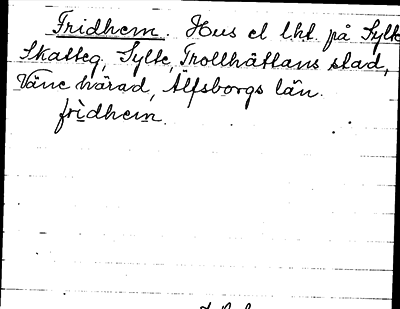 Fridhem. Hus el lht. på Sylte
Skatteg, Sylte, Trollhättans stad,
Väne härad, Älfsborgs län.
frìdhem